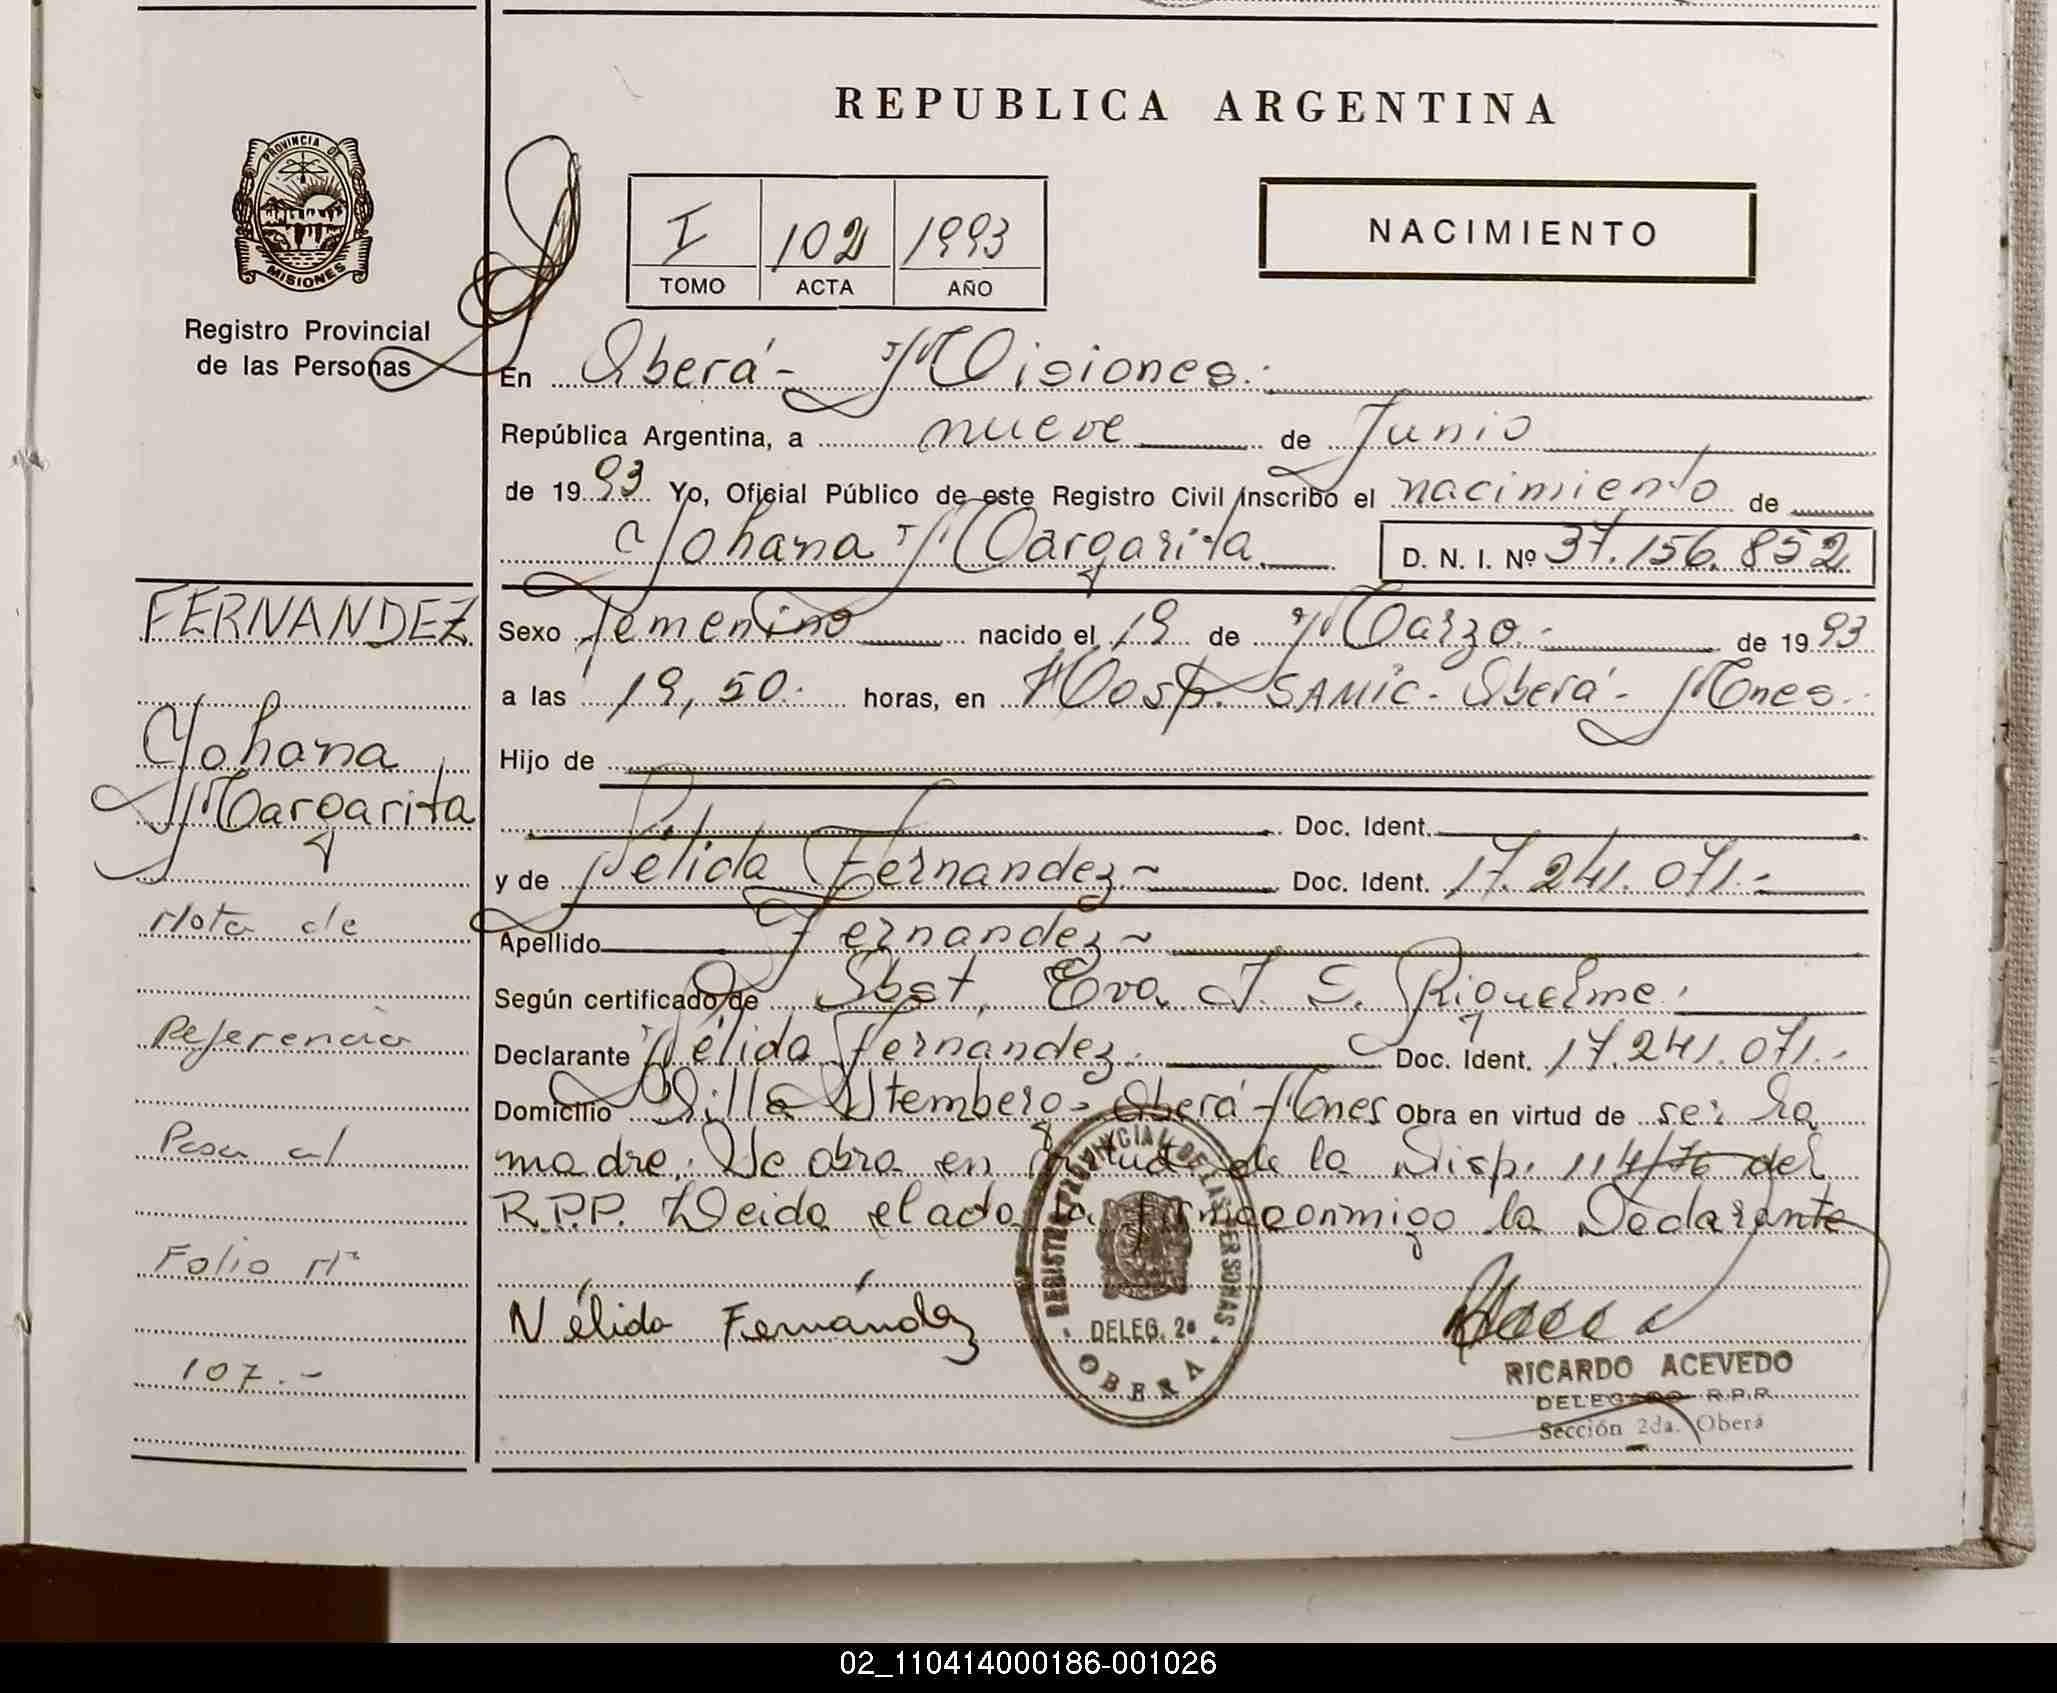 REPUBLICA ARGENTINA
PROVINCIA DE
MISIONES
Registro Provincial
de las Personas
I 102 1993
TOMO ACTA AÑO
NACIMIENTO
En Oberá - Misiones.
República Argentina, a nueve de Junio
de 1993 Yo, Oficial Público de este Registro Civil inscribo el nacimiento de
Yohana Margarita D. N. I. Nº 37.156.852
Sexo femenino nacido el 19 de Marzo.- de 1993
a las 19,50. horas, en Hosp. SAMIC - Oberá - Mnes.
Hijo de
Doc. Ident.
y de Nélida Fernandez Doc. Ident. 17.241.071.-
Apellido Fernandez
Según certificado de Obst. Eva J. S. Riquelme.
Declarante Nélida Fernández. Doc. Ident. 17.241.071.-
Domicilio Villa Stemberg - Oberá - Mnes Obra en virtud de ser la
madre. Se obra en virtud de la Disp. 114/76 del
R.P.P. Leida el acta la firma conmigo la Declarante
Nélida Fernández
REGISTRO PROVINCIAL DE LAS PERSONAS
DELEG. 2a
OBERA
RICARDO ACEVEDO
DELEGADO R.P.P.
Sección 2da. Oberá
FERNANDEZ
Yohana
Margarita
Nota de
Referencia
Pasa al
Folio Nº
107.-
02_110414000186-001026